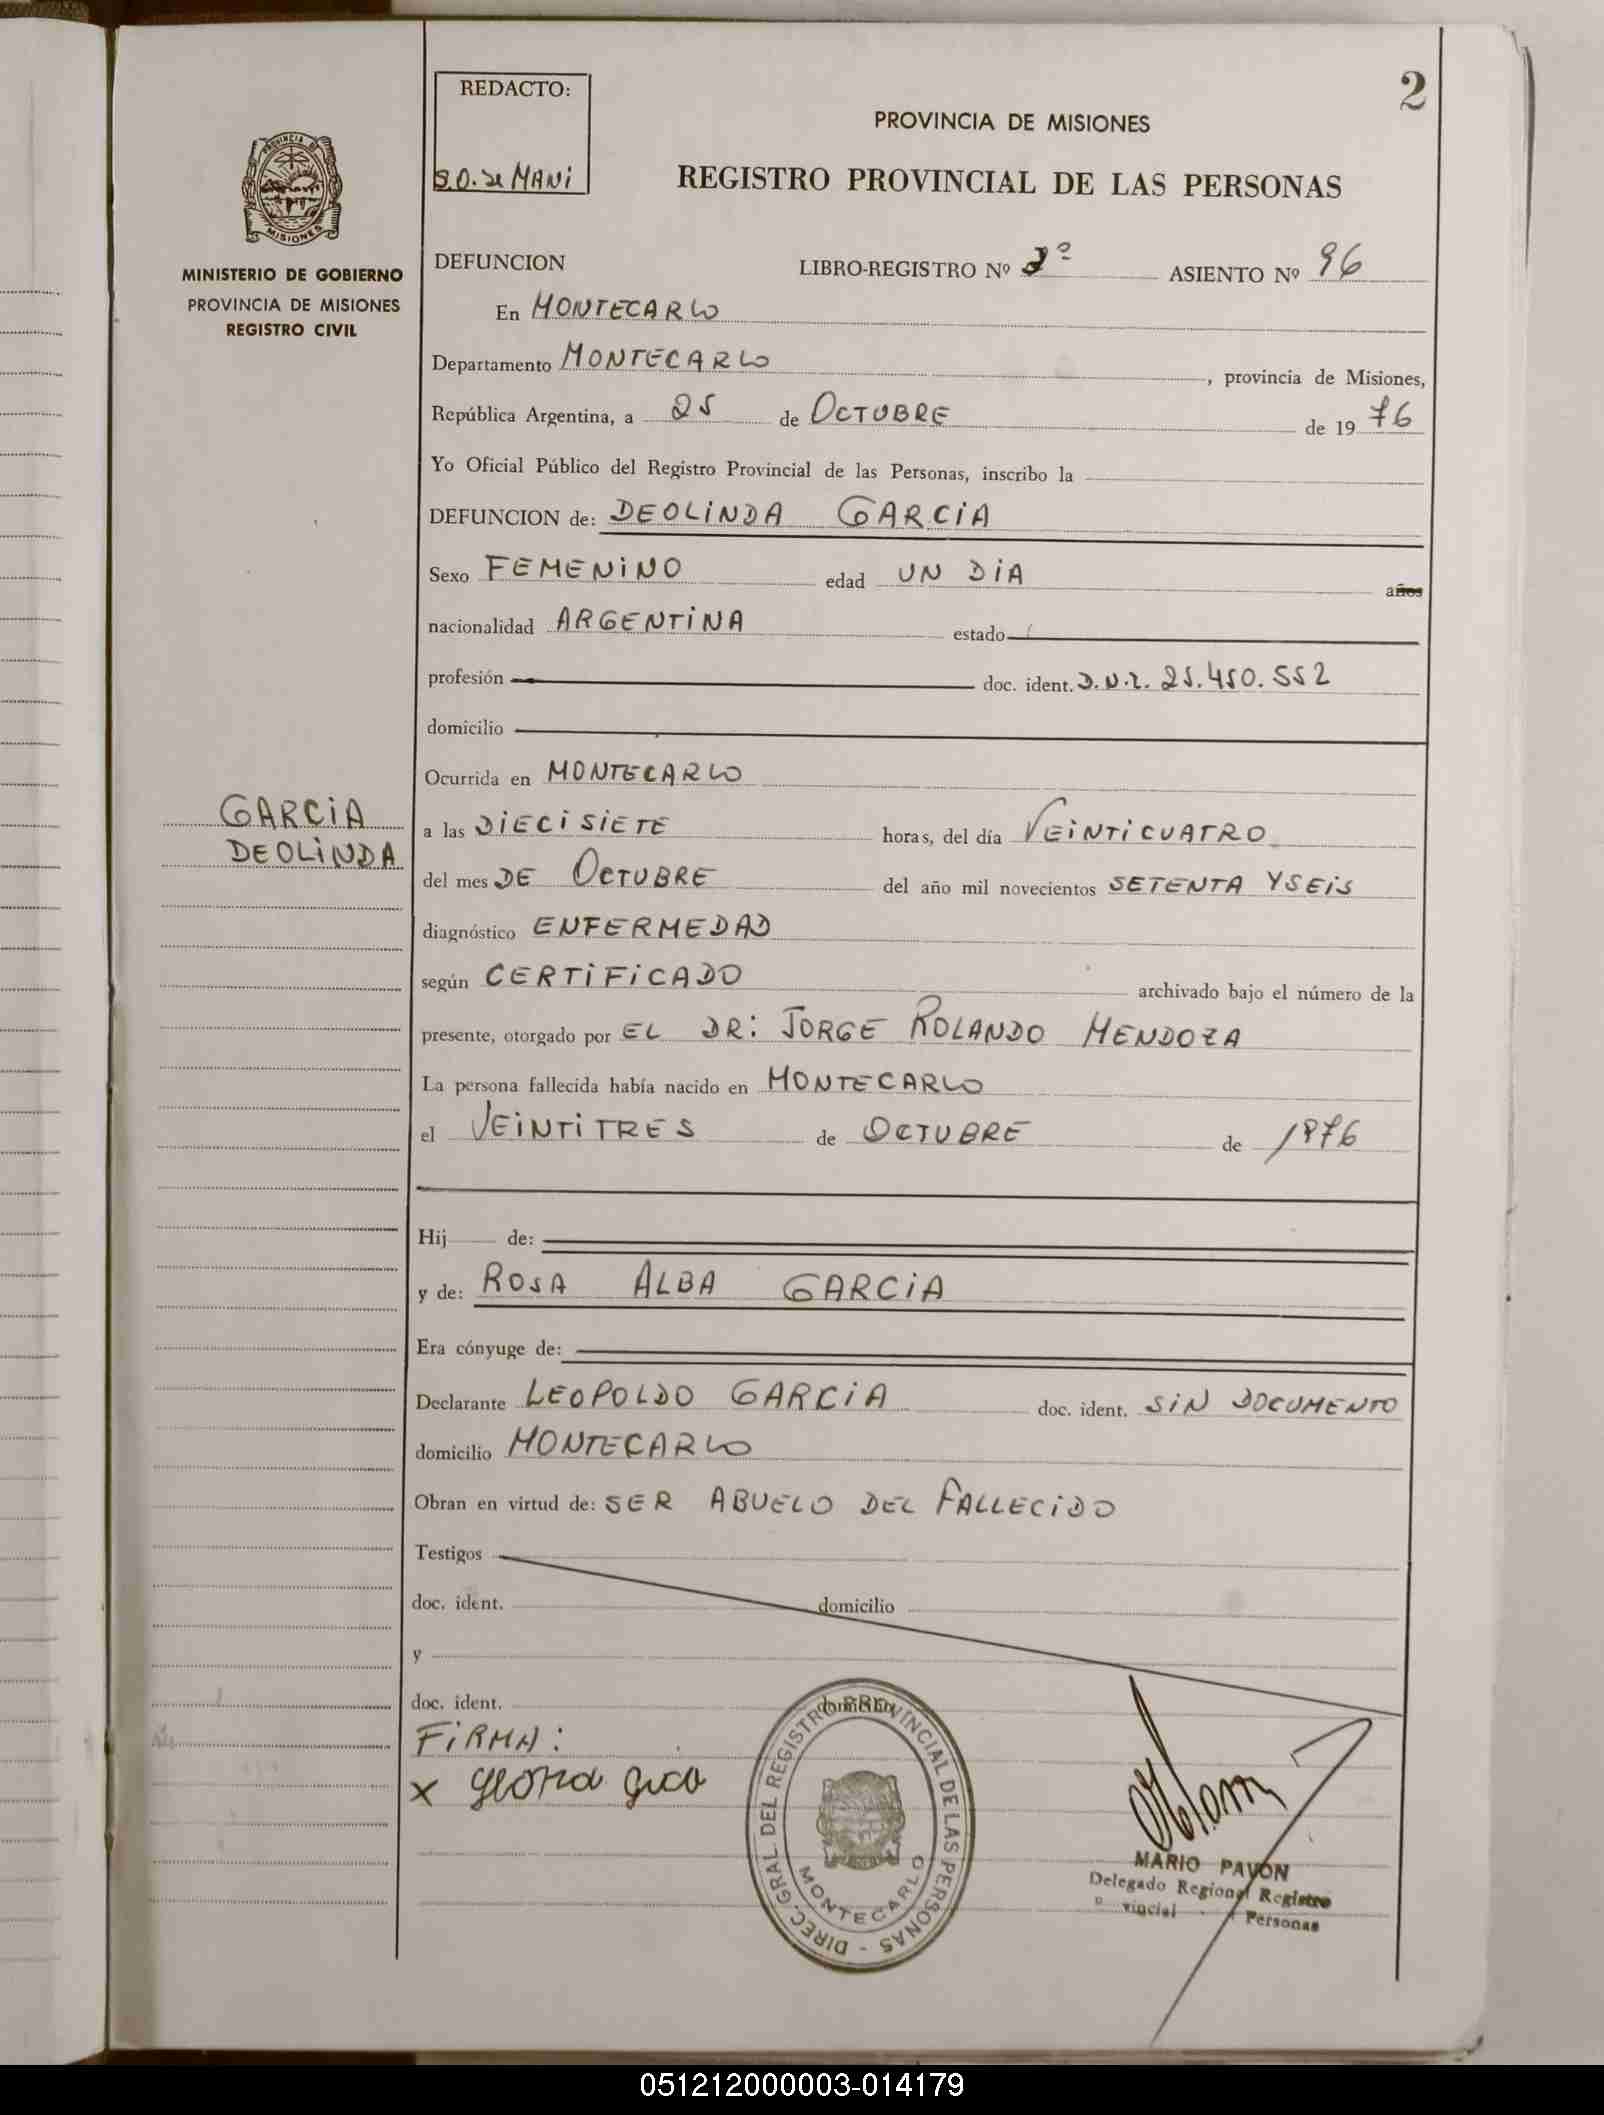 2
REDACTO:
S.O. de MANI
PROVINCIA DE MISIONES
REGISTRO PROVINCIAL DE LAS PERSONAS
PROVINCIA DE
MISIONES
MINISTERIO DE GOBIERNO
PROVINCIA DE MISIONES
REGISTRO CIVIL
DEFUNCION LIBRO-REGISTRO Nº 2º ASIENTO Nº 96
En MONTECARLO
Departamento MONTECARLO, provincia de Misiones,
República Argentina, a 25 de OCTUBRE de 1976
Yo Oficial Público del Registro Provincial de las Personas, inscribo la
DEFUNCION de: DEOLINDA GARCIA
Sexo FEMENINO edad UN DIA años
nacionalidad ARGENTINA estado
profesión doc. ident. D.N.I. 25.450.552
domicilio
Ocurrida en MONTECARLO
GARCIA
DEOLINDA
a las DIECISIETE horas, del día VEINTICUATRO
del mes DE OCTUBRE del año mil novecientos SETENTA Y SEIS
diagnóstico ENFERMEDAD
según CERTIFICADO archivado bajo el número de la
presente, otorgado por EL DR: JORGE ROLANDO MENDOZA
La persona fallecida había nacido en MONTECARLO
el VEINTITRES de OCTUBRE de 1976
Hij de:
y de: ROSA ALBA GARCIA
Era cónyuge de:
Declarante LEOPOLDO GARCIA doc. ident. SIN DOCUMENTO
domicilio MONTECARLO
Obran en virtud de: SER ABUELO DEL FALLECIDO
Testigos
doc. ident. domicilio
y
doc. ident. domicilio
FIRMA:
x
DIREC. GRAL DEL REGISTRO PROVINCIAL DE LAS PERSONAS -
MONTECARLO
MARIO PAVON
Delegado Regional Registro
vincial Personas
051212000003-014179